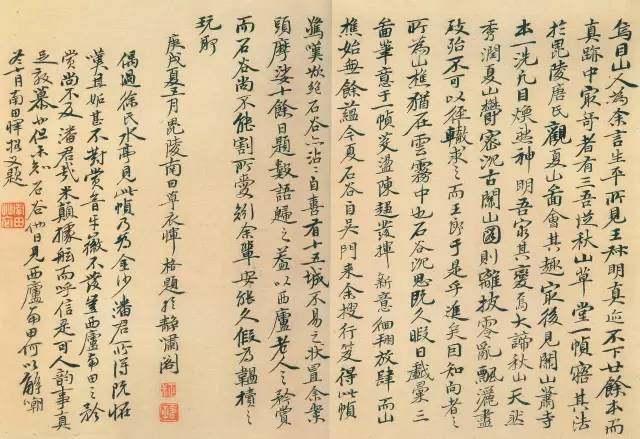 烏目山人為余言生平所見王叔明真迹不下廿餘本而
真跡中最奇者有三吾從秋山草堂一幀寤其法
於毘陵唐氏觀夏山圖會其趣最後見關山蕭寺
本一洗凡目煥然神明吾窮其變焉大諦秋山天然
秀潤夏山鬱密沉古關山圖則離披零亂飄灑盡
致殆不可以徑轍求之而王郎于是乎進矣因知向者之
所為山樵猶在雲霧中也石谷沉思既久暇日戲彙三
圖筆意于一幀滌盪陳趨發揮新意徊翔放肆而山
樵始無餘蘊今夏石谷自吳門來余搜行笈得此幀
驚嘆欲絕石谷亦沾沾自喜有十五城不易之狀置余案
頭摩娑十餘日題數語歸之蓋以西廬老人之矜賞
而石谷尚不能割所愛矧余輩安能久假為韞櫝之
玩耶
庚戌夏五月毘陵南田草衣惲格題於靜嘯閣
偶過徐氏水亭見此幀乃為金沙潘君所得既怪
嘆且妬甚不對賞音牙徽不發豈西廬南田之矜
賞尚不及潘君哉米顛據舷而呼信是可人韻事真
足效慕也但未知石谷他日見西廬南田何以解嘲
冬十月南田惲格又題